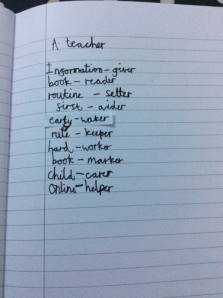 A teacher
Information-giver
book-reader
routine-setter
first-aider
early-waker
rule-keeper
hard-worker
book-marker
child-carer
Online-helper